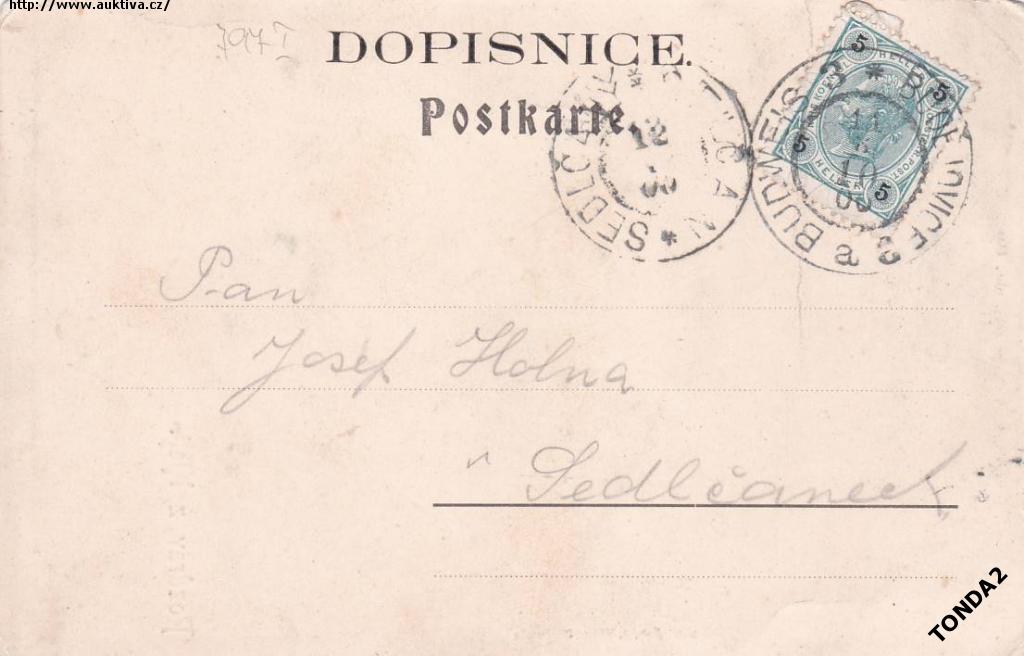 http://www.auktiva.cz/
797 I
DOPISNICE.
Postkarte.
SEDLČAN
12
BUDWEIS 3 * BUDĚJOVICE 3
a
11
10
5 5 5 5
HELLER HELLER
Pan
Josef Holna
v Sedlčanech
TONDA2